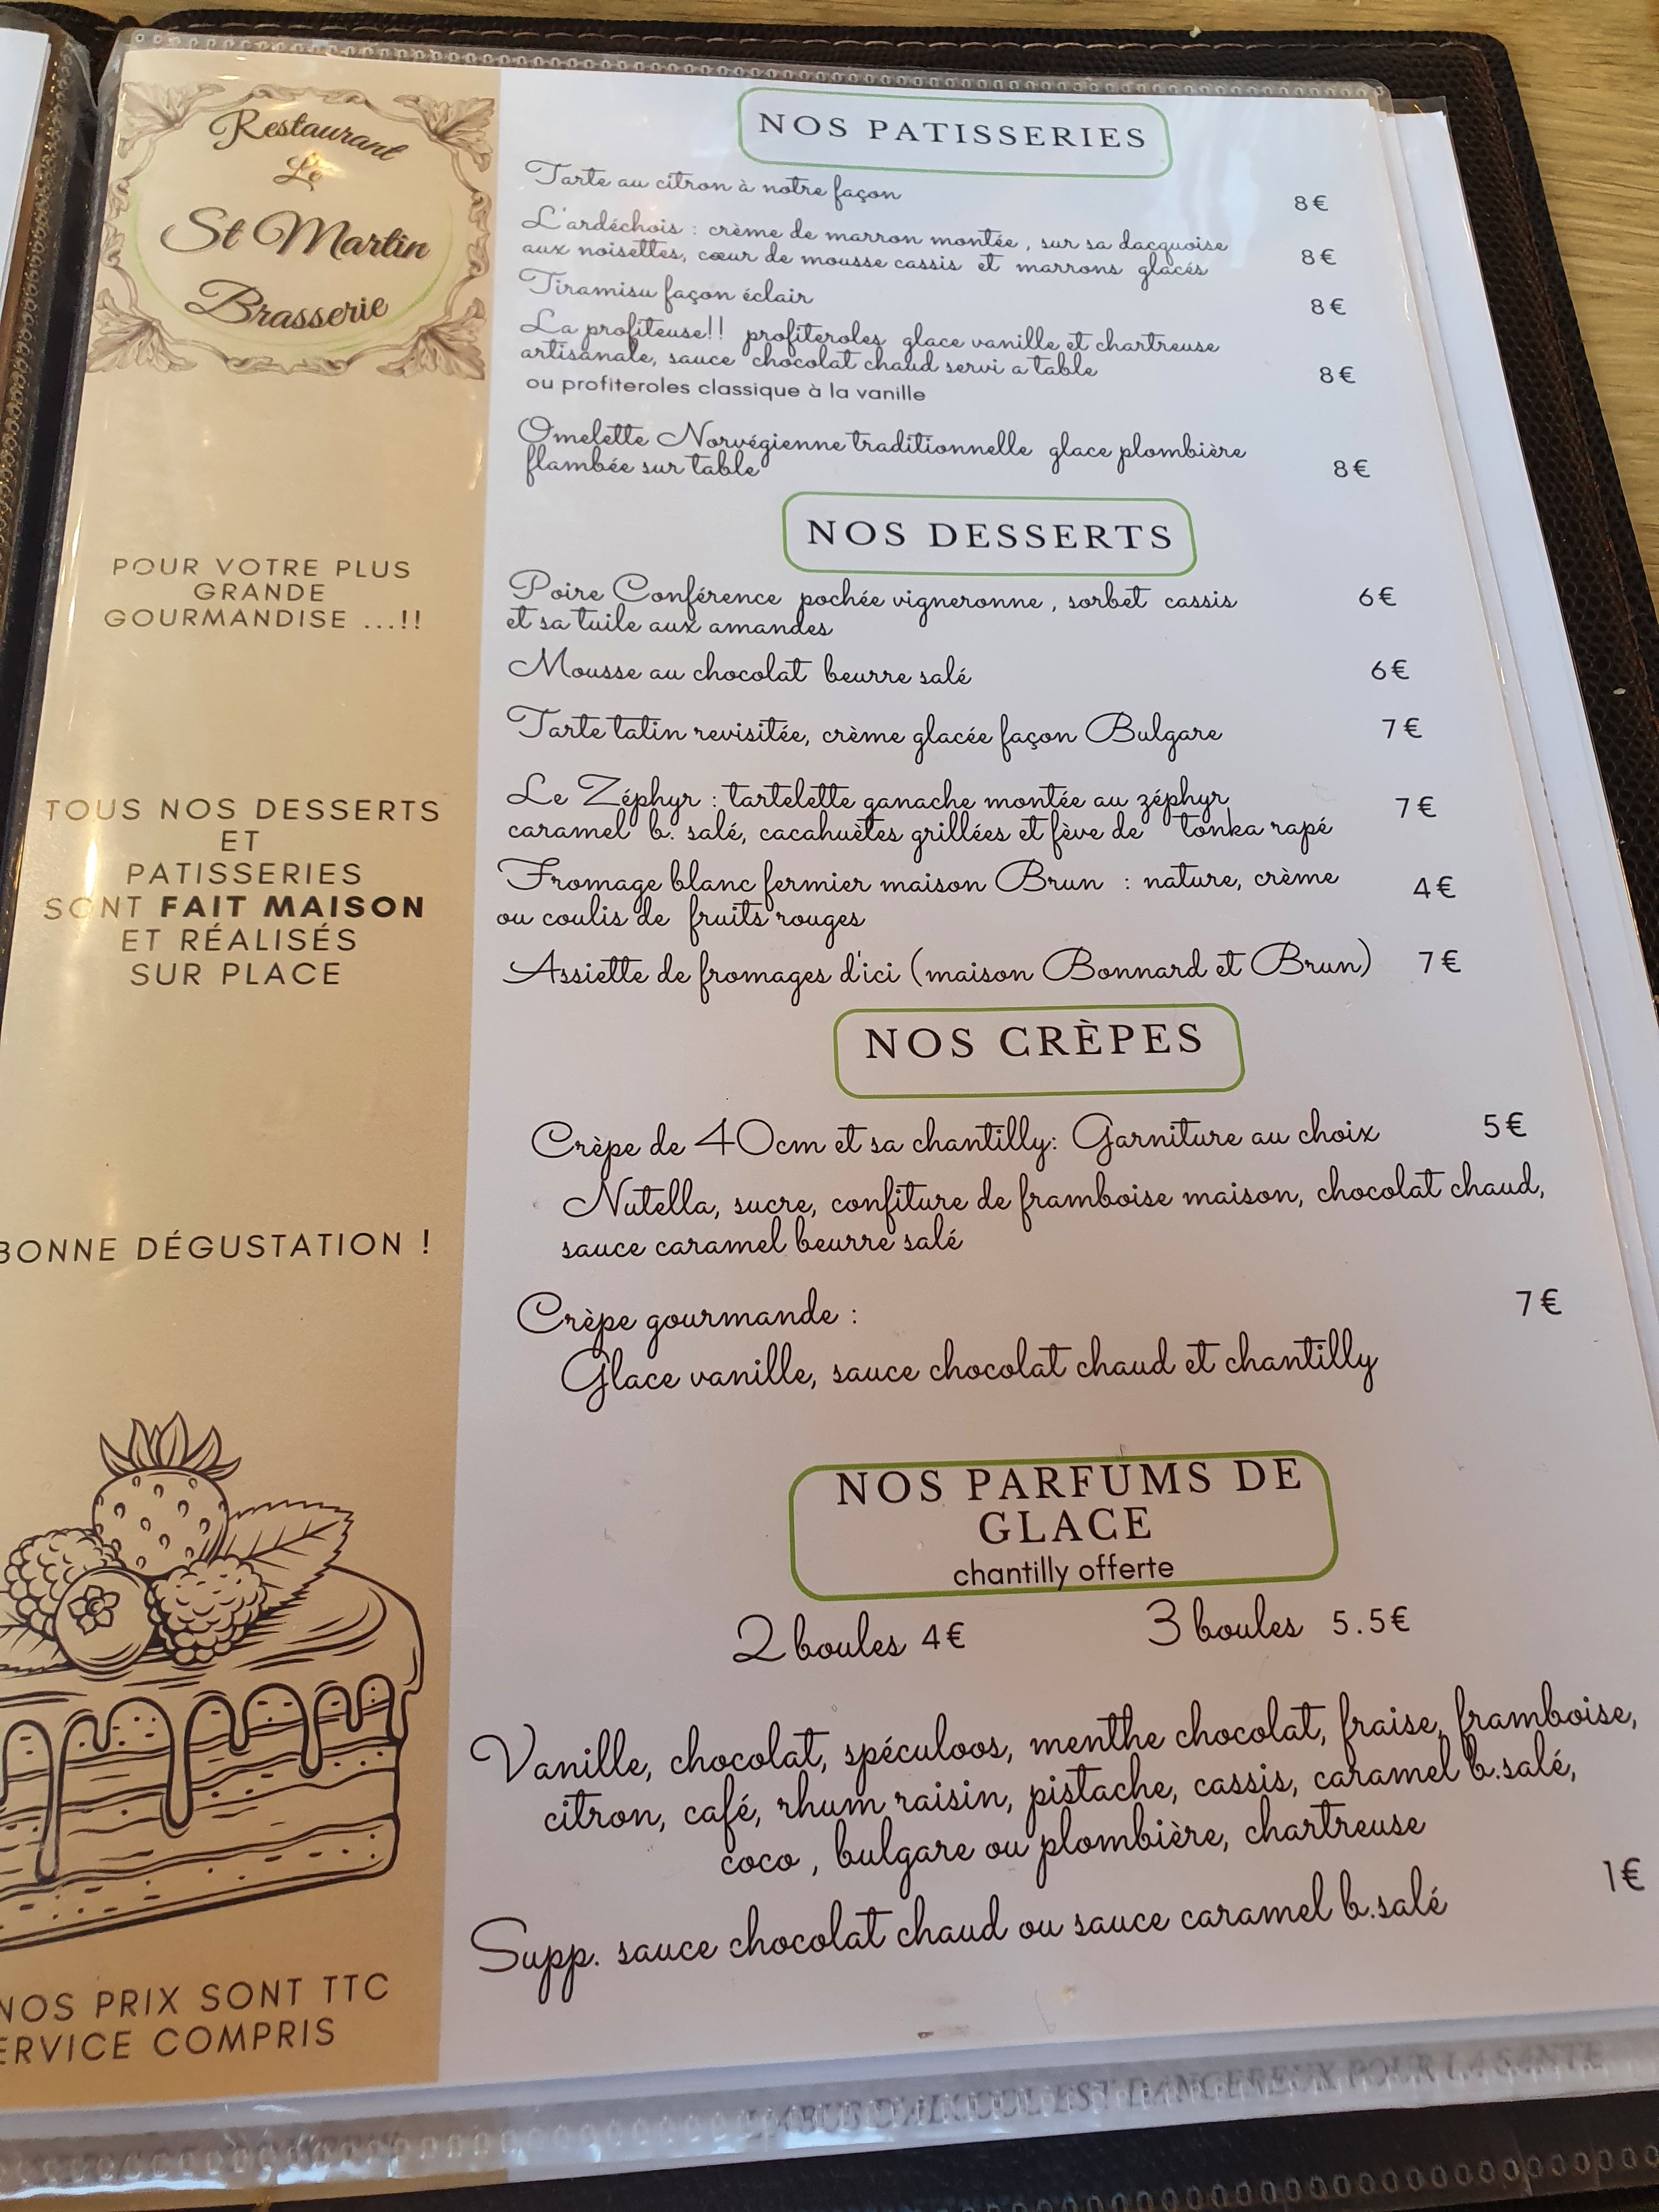 Restaurant
Le
St Martin
Brasserie
POUR VOTRE PLUS
GRANDE
GOURMANDISE ...!!
TOUS NOS DESSERTS
ET
PATISSERIES
SONT FAIT MAISON
ET RÉALISÉS
SUR PLACE
BONNE DÉGUSTATION !
NOS PRIX SONT TTC
ERVICE COMPRIS
NOS PATISSERIES
Tarte au citron à notre façon 8€
L'ardéchois : crème de marron montée , sur sa dacquoise
aux noisettes, cœur de mousse cassis et marrons glacés 8€
Tiramisu façon éclair 8€
La profiteuse!! profiteroles glace vanille et chartreuse
artisanale, sauce chocolat chaud servi a table 8€
ou profiteroles classique à la vanille
Omelette Norvégienne traditionnelle glace plombière
flambée sur table 8€
NOS DESSERTS
Poire Conférence pochée vigneronne , sorbet cassis 6€
et sa tuile aux amandes
Mousse au chocolat beurre salé 6€
Tarte tatin revisitée, crème glacée façon Bulgare 7€
Le Zéphyr : tartelette ganache montée au zéphyr 7€
caramel b. salé, cacahuètes grillées et fève de tonka rapé
Fromage blanc fermier maison Brun : nature, crème 4€
ou coulis de fruits rouges
Assiette de fromages d'ici (maison Bonnard et Brun) 7€
NOS CRÈPES
Crèpe de 40cm et sa chantilly: Garniture au choix 5€
Nutella, sucre, confiture de framboise maison, chocolat chaud,
sauce caramel beurre salé
Crèpe gourmande : 7€
Glace vanille, sauce chocolat chaud et chantilly
NOS PARFUMS DE
GLACE
chantilly offerte
2 boules 4€ 3 boules 5.5€
Vanille, chocolat, spéculoos, menthe chocolat, fraise, framboise,
citron, café, rhum raisin, pistache, cassis, caramel b.salé,
coco , bulgare ou plombière, chartreuse
Supp. sauce chocolat chaud ou sauce caramel b.salé 1€
L'ABUS D'ALCOOL EST DANGEREUX POUR LA SANTE